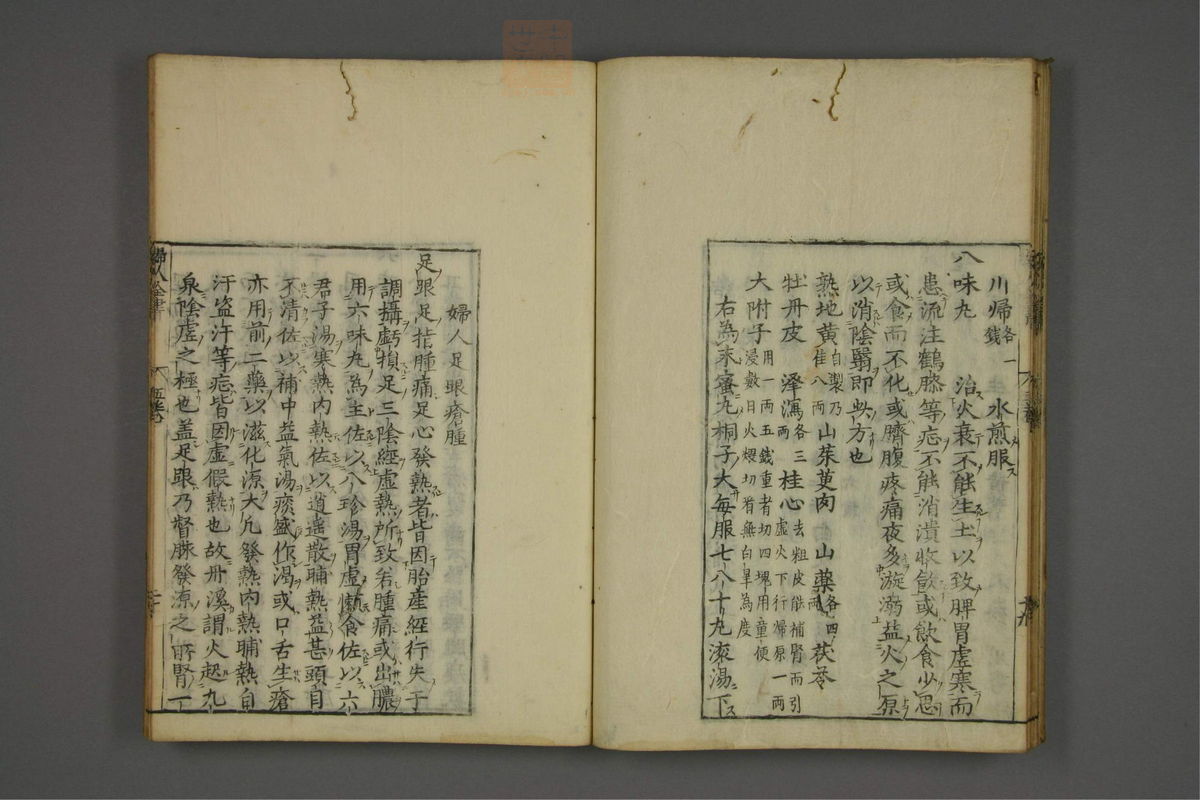 川歸各一錢 水煎服
八味丸 治火衰不能生土以致脾胃虛寒而
患流注鶴膝等症不能消潰收斂或飲食少思
或食而不化或臍腹疼痛夜多漩溺益火之原
以消陰翳即此方也
熟地黃自製乃佳八兩 山茱萸肉 山藥各四兩 茯苓
牡丹皮 澤瀉各三兩 桂心去粗皮能補腎而引虛火下行歸原一兩
大附子用一兩五錢重者切四塊用童便浸數日火煨切看無白暈為度
右為末蜜丸桐子大每服七八十丸滾湯下
婦人足跟瘡腫
足跟足指腫痛足心發熱者皆因胎產經行失于
調攝虧損足三陰經虛熱所致若腫痛或出膿
用六味丸為主佐以八珍湯胃虛懶食佐以六
君子湯寒熱內熱佐以逍遙散晡熱益甚頭目
不清佐以補中益氣湯痰盛作渴或口舌生瘡
亦用前二藥以滋化源大凡發熱內熱晡熱自
汗盜汗等症皆因虛假熱也故丹溪謂火起九
泉陰虛之極也蓋足跟乃督脉發源之所腎一
婦人全書